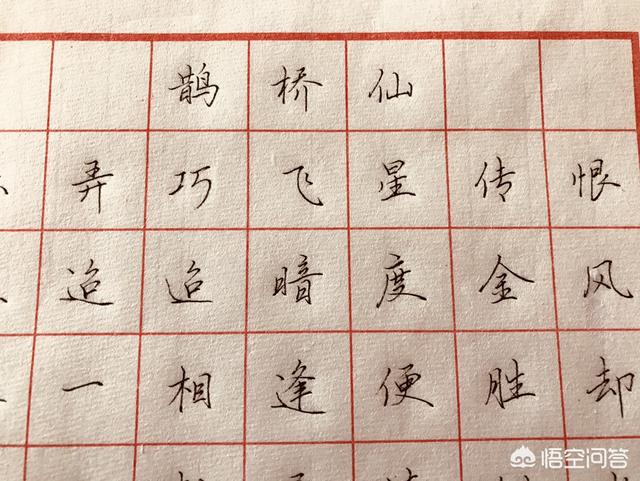 鹊桥仙
弄巧飞星传恨
迢迢暗度金风
一相逢便胜却
悟空问答